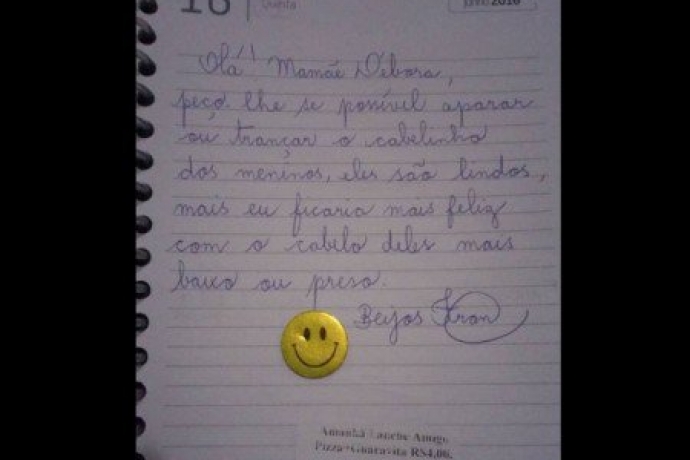 16
Quinta
2016
Olá!! Mamãe Débora,
peço-lhe se possível aparar
ou trançar o cabelinho
dos meninos, eles são lindos,
mais eu ficaria mais feliz
com o cabelo deles mais
baixo ou preso.
Beijos
Amanhã Lanche Amigo.
Pizza+Guaravita R$4,00.